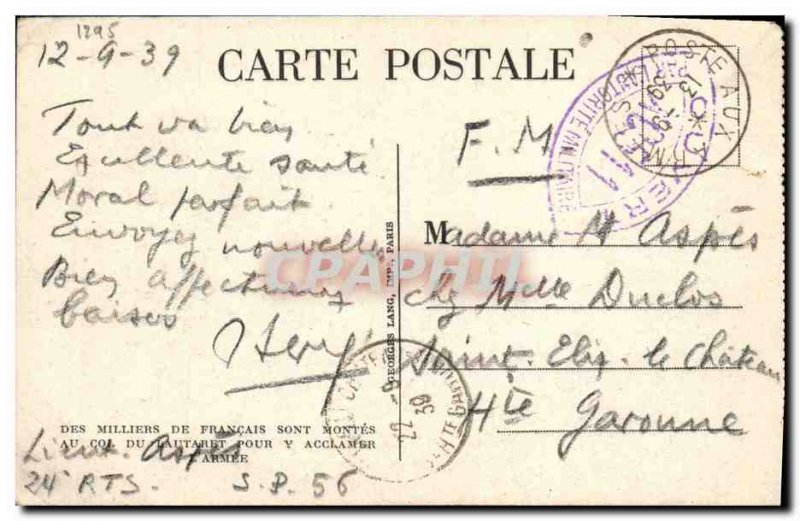 1295
12-9-39
CARTE POSTALE
POSTE AUX ARMÉES
AUTORITE MILITAIRE
F.M
Tout va bien
Excellente santé
Moral parfait
Envoyez nouvelles
Bien affectueux
baisers
Madame H Aspès
chez Mlle Duclos
Saint-Elix-le Château
Hte Garonne
GEORGES LANG, IMP., PARIS
CPAPHIL
DES MILLIERS DE FRANÇAIS SONT MONTÉS
AU COL DU LAUTARET POUR Y ACCLAMER
L'ARMÉE
Lieut. Aspès
24e RTS. S.P. 56